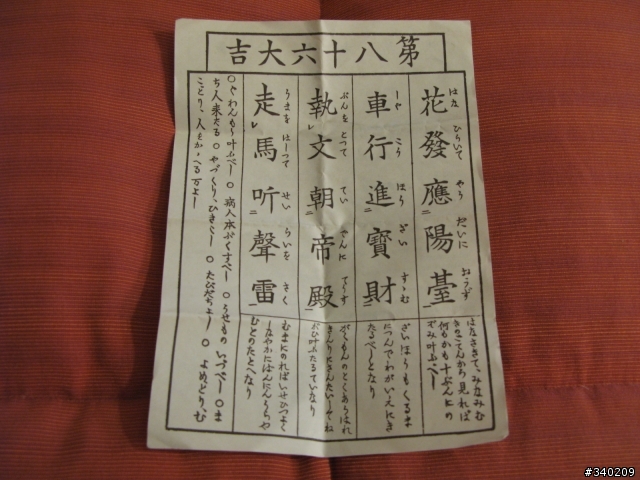 第八十六大吉
花發應陽臺
はな ひらいて やう だいに おうず
はなさきて、みなみむ
きのごてんから見れば
何もかも十ぶんにの
ぞみ叶ふべし
車行進寶財
しや こう ほう ざい すゝむ
ざいほうもくるま
につんでわがいえにき
たるべしとなり
執文朝帝殿
ぶんを とつて てい でんに てうす
がくもんのとくあらはれ
きんりにさんだいしてね
がひ叶ふたるていなり
走馬听聲雷
うまを はしつて せい らいを きく
むまにのればいせひつよく
しなやかにばんにんうらや
むとのたとへなり
○ぐわんもう叶ふべし ○病人本ぷくすべし ○うせものいづべし ○ま
ち人来たる ○やづくり、ひき ○たびだちよし ○よめどり、む
ことり、人をかゝへる万よし